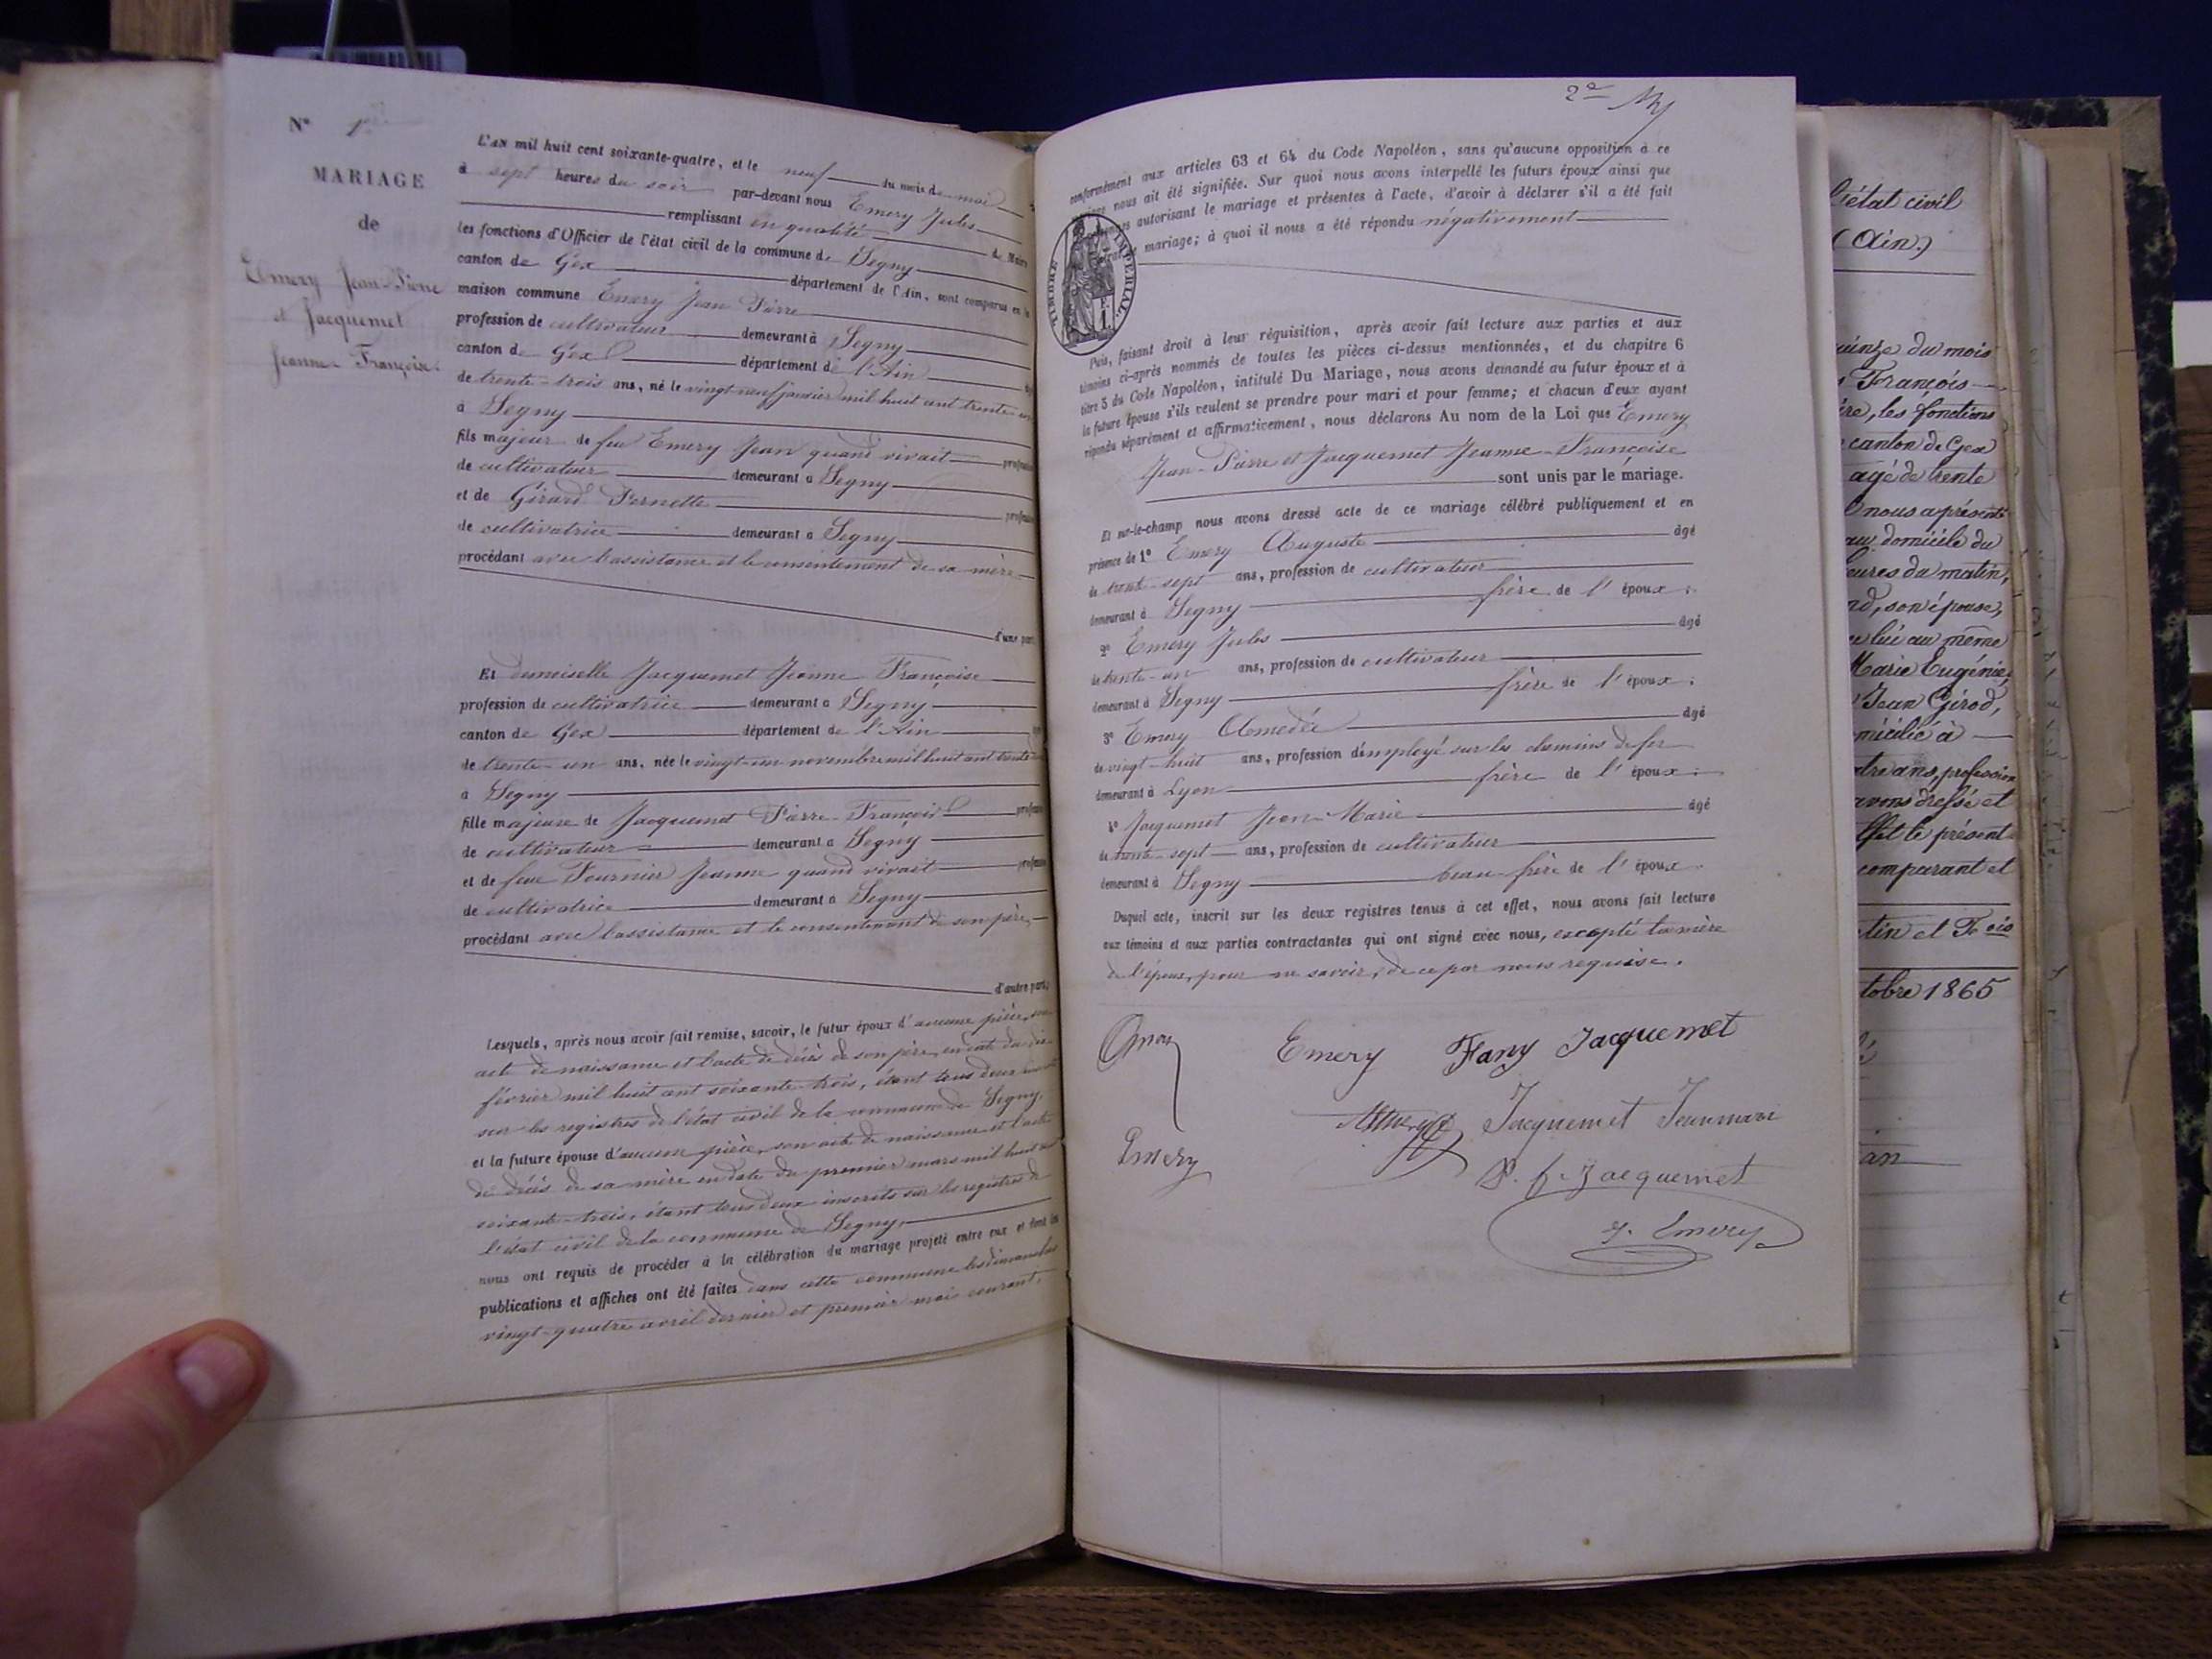 N° 1er
MARIAGE
de
Emery Jean-Pierre
et Jacquemet
Jeanne-Françoise
L'AN mil huit cent soixante-quatre, et le neuf du mois de mai
à sept heures du soir par-devant nous Emery Jules
remplissant en qualité de Maire
les fonctions d'Officier de l'état civil de la commune de Segny
canton de Gex département de l'Ain, sont comparus en la
maison commune Emery Jean Pierre
profession de cultivateur demeurant à Segny
canton de Gex département de l'Ain
de trente-trois ans, né le vingt-neuf janvier mil huit cent trente-un
à Segny
fils majeur de feu Emery Jean quand vivait profession
de cultivateur demeurant à Segny
et de Girard Pernette profession
de cultivatrice demeurant à Segny
procédant avec l'assistance et le consentement de sa mère
d'une part
Et demoiselle Jacquemet Jeanne Françoise
profession de cultivatrice demeurant à Segny
canton de Gex département de l'Ain
de trente-un ans, née le vingt-un novembre mil huit cent trente
à Segny
fille majeure de Jacquemet Pierre-François profession
de cultivateur demeurant à Segny
et de feue Fournier Jeanne quand vivait profession
de cultivatrice demeurant à Segny
procédant avec l'assistance et le consentement de son père,
d'autre part;
Lesquels, après nous avoir fait remise, savoir, le futur époux d'aucune pièce, son
acte de naissance et l'acte de décès de son père, en date du dix
février mil huit cent soixante-trois, étant tous deux inscrits
sur les registres de l'état civil de la commune de Segny,
et la future épouse d'aucune pièce, son acte de naissance et l'acte
de décès de sa mère en date du premier mars mil huit cent
soixante-trois, étant tous deux inscrits sur les registres de
l'état civil de la commune de Segny,
nous ont requis de procéder à la célébration du mariage projeté entre eux et dont les
publications et affiches ont été faites dans cette commune les dimanches
vingt-quatre avril dernier et premier mai courant,
2e
conformément aux articles 63 et 64 du Code Napoléon, sans qu'aucune opposition à ce
mariage nous ait été signifiée. Sur quoi nous avons interpellé les futurs époux ainsi que
autorisant le mariage et présentes à l'acte, d'avoir à déclarer s'il a été fait
mariage; à quoi il nous a été répondu négativement
TIMBRE IMPÉRIAL
Puis, faisant droit à leur réquisition, après avoir fait lecture aux parties et aux
témoins ci-après nommés de toutes les pièces ci-dessus mentionnées, et du chapitre 6
titre 5 du Code Napoléon, intitulé Du Mariage, nous avons demandé au futur époux et à
la future épouse s'ils veulent se prendre pour mari et pour femme; et chacun d'eux ayant
répondu séparément et affirmativement, nous déclarons Au nom de la Loi que Emery
Jean-Pierre et Jacquemet Jeanne-Françoise
sont unis par le mariage.
Et sur-le-champ nous avons dressé acte de ce mariage célébré publiquement et en
présence de 1° Emery Auguste âgé
de trente-sept ans, profession de cultivateur
demeurant à Segny frère de l'époux;
2° Emery Jules âgé
de trente-un ans, profession de cultivateur
demeurant à Segny frère de l'époux;
3° Emery Amedée âgé
de vingt-huit ans, profession d'employé sur les chemins de fer
demeurant à Lyon frère de l'époux;
4° Jacquemet Jean-Marie âgé
de trente-sept ans, profession de cultivateur
demeurant à Segny beau-frère de l'époux.
Duquel acte, inscrit sur les deux registres tenus à cet effet, nous avons fait lecture
aux témoins et aux parties contractantes qui ont signé avec nous, excepté la mère
de l'époux, pour ne savoir, de ce par nous requise.
Emery Fany Jacquemet
Jacquemet Jeanmari
Emery
P. f. Jacquemet
J. Emery
l'état civil
(Ain.)
quinze du mois
François
ire, les fonctions
canton de Gex
agé de trente
nous a présenté
au domicile du
heures du matin,
nd, son épouse,
lui au même
Marie Eugénie,
Jean Girod,
micilié à
tre ans, profession
avons dressé et
le présent
comparant et
tin et Fois
tobre 1865
an